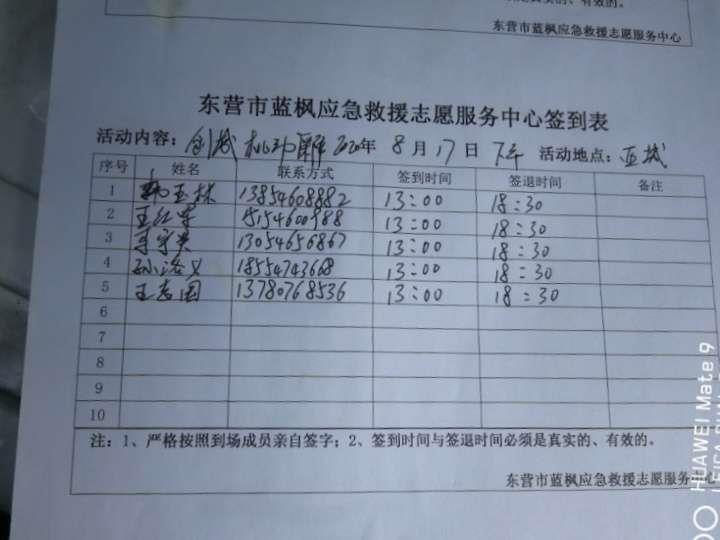 的、有效的。
东营市蓝枫应急救援志愿服务中心
东营市蓝枫应急救援志愿服务中心签到表
活动内容：创城 2020年 8月17日 下午 活动地点：
序号 姓名 联系方式 签到时间 签退时间 备注
1 韩玉林 13854608882 13:00 18:30
2 王红军 15154600988 13:00 18:30
3 13054656867 13:00 18:30
4 孙洛义 18554743668 13:00 18:30
5 王志国 13780768536 13:00 18:30
6
7
8
9
10
注：1、严格按照到场成员亲自签字；2、签到时间与签退时间必须是真实的、有效的。
东营市蓝枫应急救援志愿服务中心
HUAWEI Mate 9